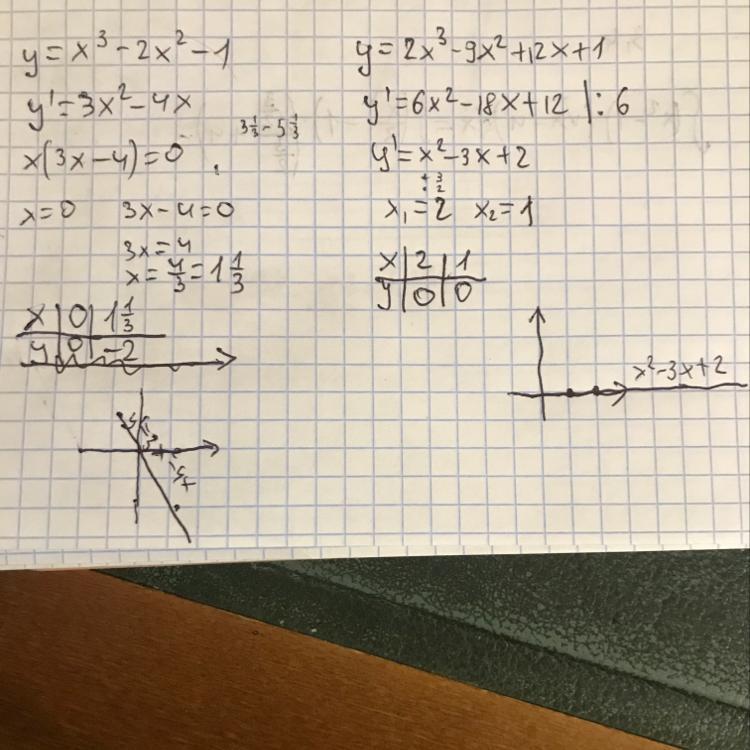 y = x³ - 2x² - 1
y' = 3x² - 4x
3 1/3 - 5 1/3
x(3x - 4) = 0
x = 0 3x - 4 = 0
3x = 4
x = 4/3 = 1 1/3
x | 0 | 1 1/3
y | 0 | -2
y = 2x³ - 9x² + 12x + 1
y' = 6x² - 18x + 12 | : 6
y' = x² - 3x + 2
x₁ = 2 x₂ = 1
x | 2 | 1
y | 0 | 0
x² - 3x + 2